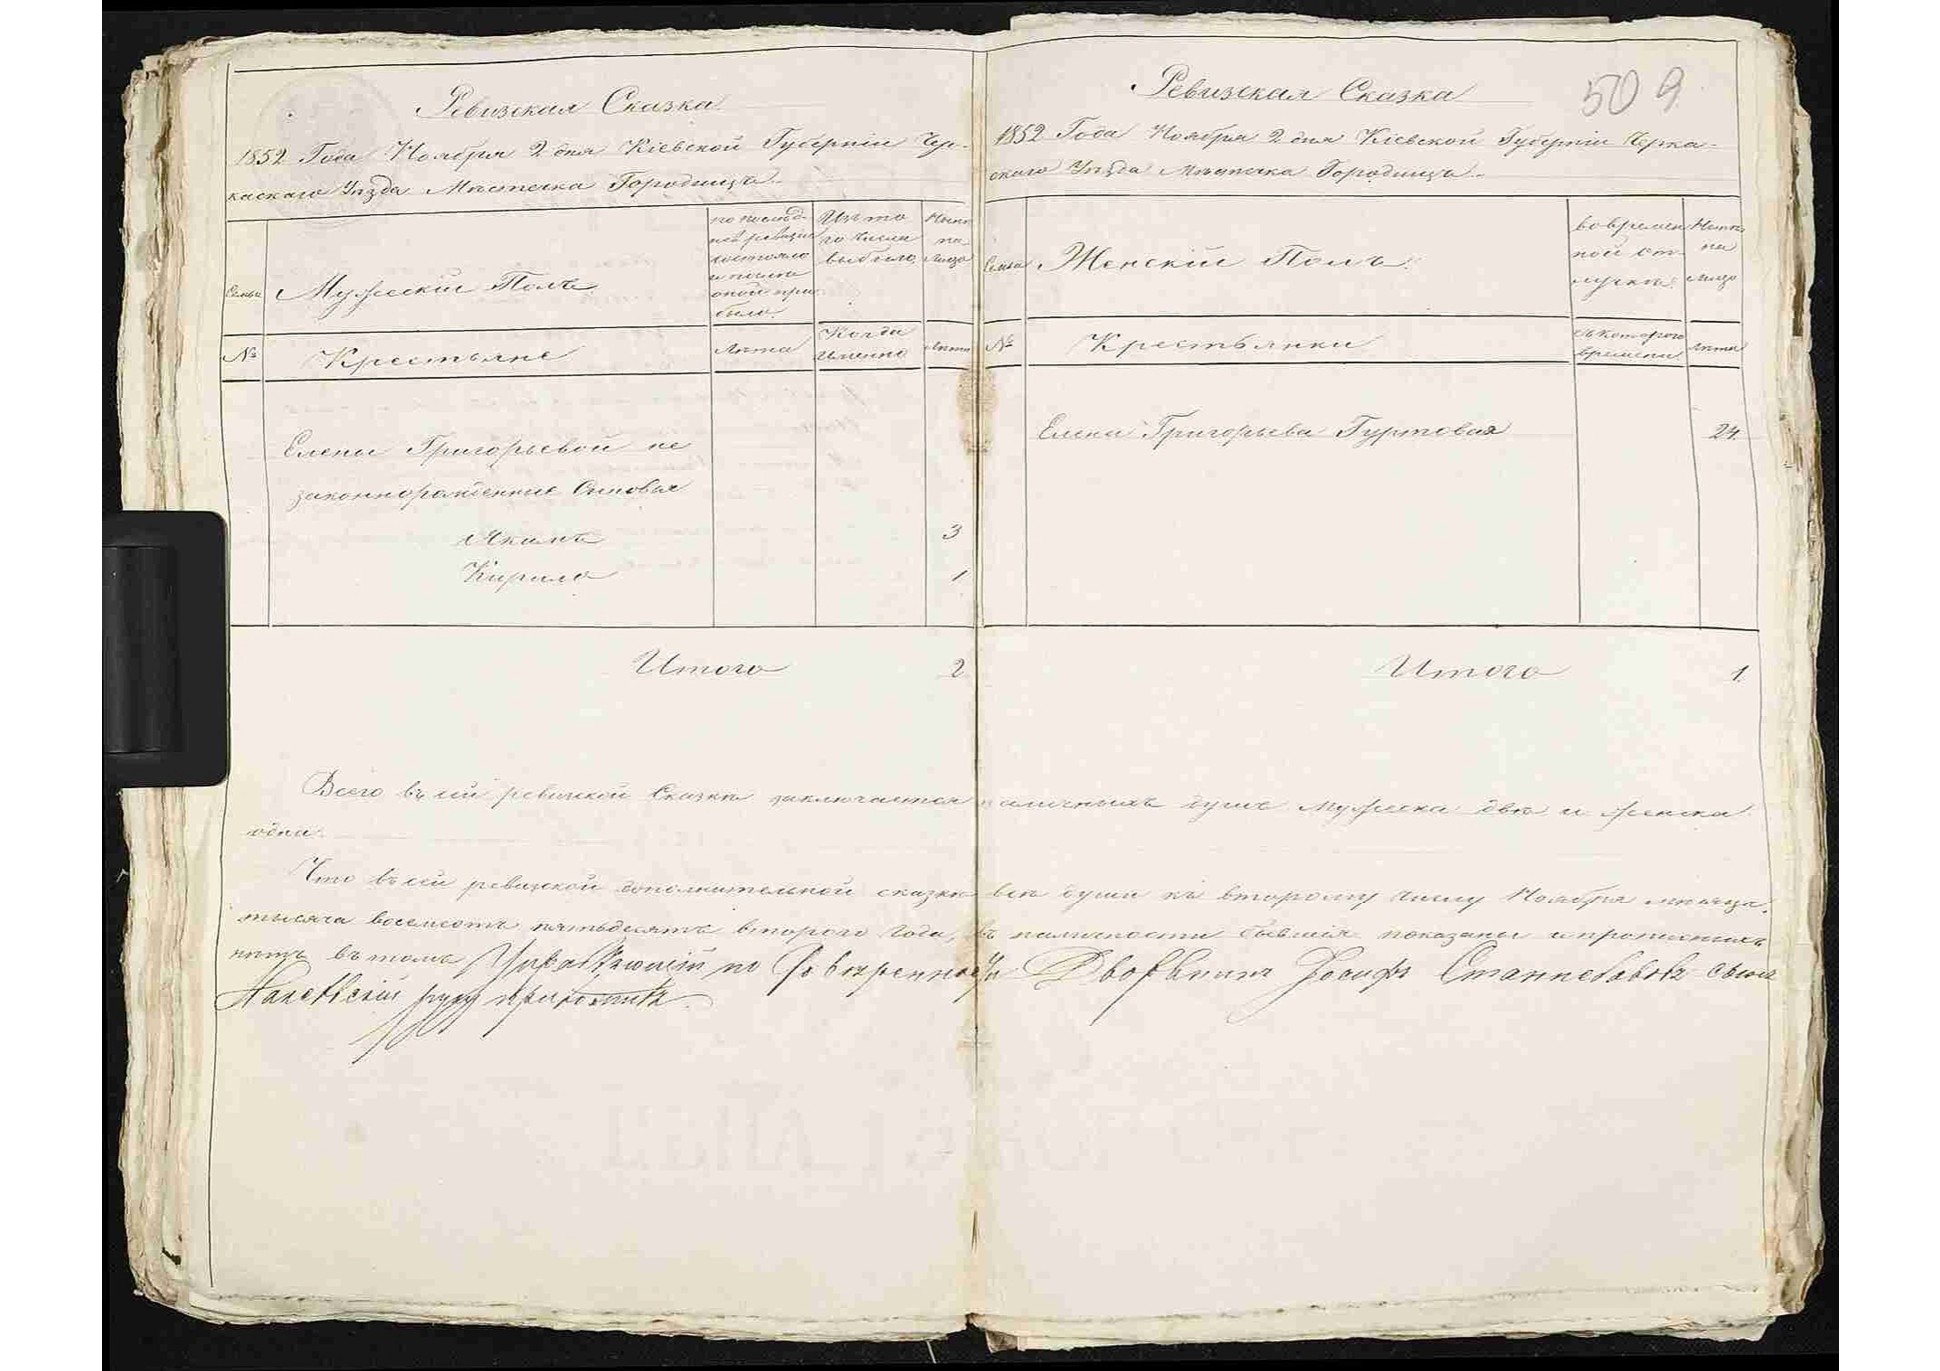 Ревизская Сказка
1852 Года Ноября 2 дня Кіевской Губерніи Чер-
каскаго Уѣзда Мѣстечка Городища.
Семья
Мужескій Полъ
по послѣд-
ней ревизіи
состояло
и послѣ
оной при
было.
Изъ то
го числа
выбыло.
Нынѣ
на
лицо
№
Крестьяне
Лѣта
Когда
именно
Лѣта
Елены Григорьевой не
законнорожденные Сыновья
Якимъ 3
Кирило 1
Итого 2
509
Ревизская Сказка
1852 Года Ноября 2 дня Кіевской Губерніи Черка-
скаго Уѣзда Мѣстечка Городища.
Семья
Женскій Полъ.
во времен
ной от-
лучкѣ.
Нынѣ
на
лицо
№
Крестьянки
съ котораго
времени
Лѣта
Елена Григорьева Гуртовая 24.
Итого 1.
Всего въ сей ревизской Сказкѣ заключается наличныхъ душъ мужеска двѣ и женска
одна.
Что въ сей ревизской дополнительной сказкѣ всѣ души къ второму числу Ноября мѣсяца,
тысяча восемсотъ пятьдесятъ втораго Года, въ наличности бывшія показаны и прописныхъ
нѣтъ въ томъ Управляющій по Довѣренности Дворянинъ Іосифъ Станиславовъ сынъ
руку приложилъ.